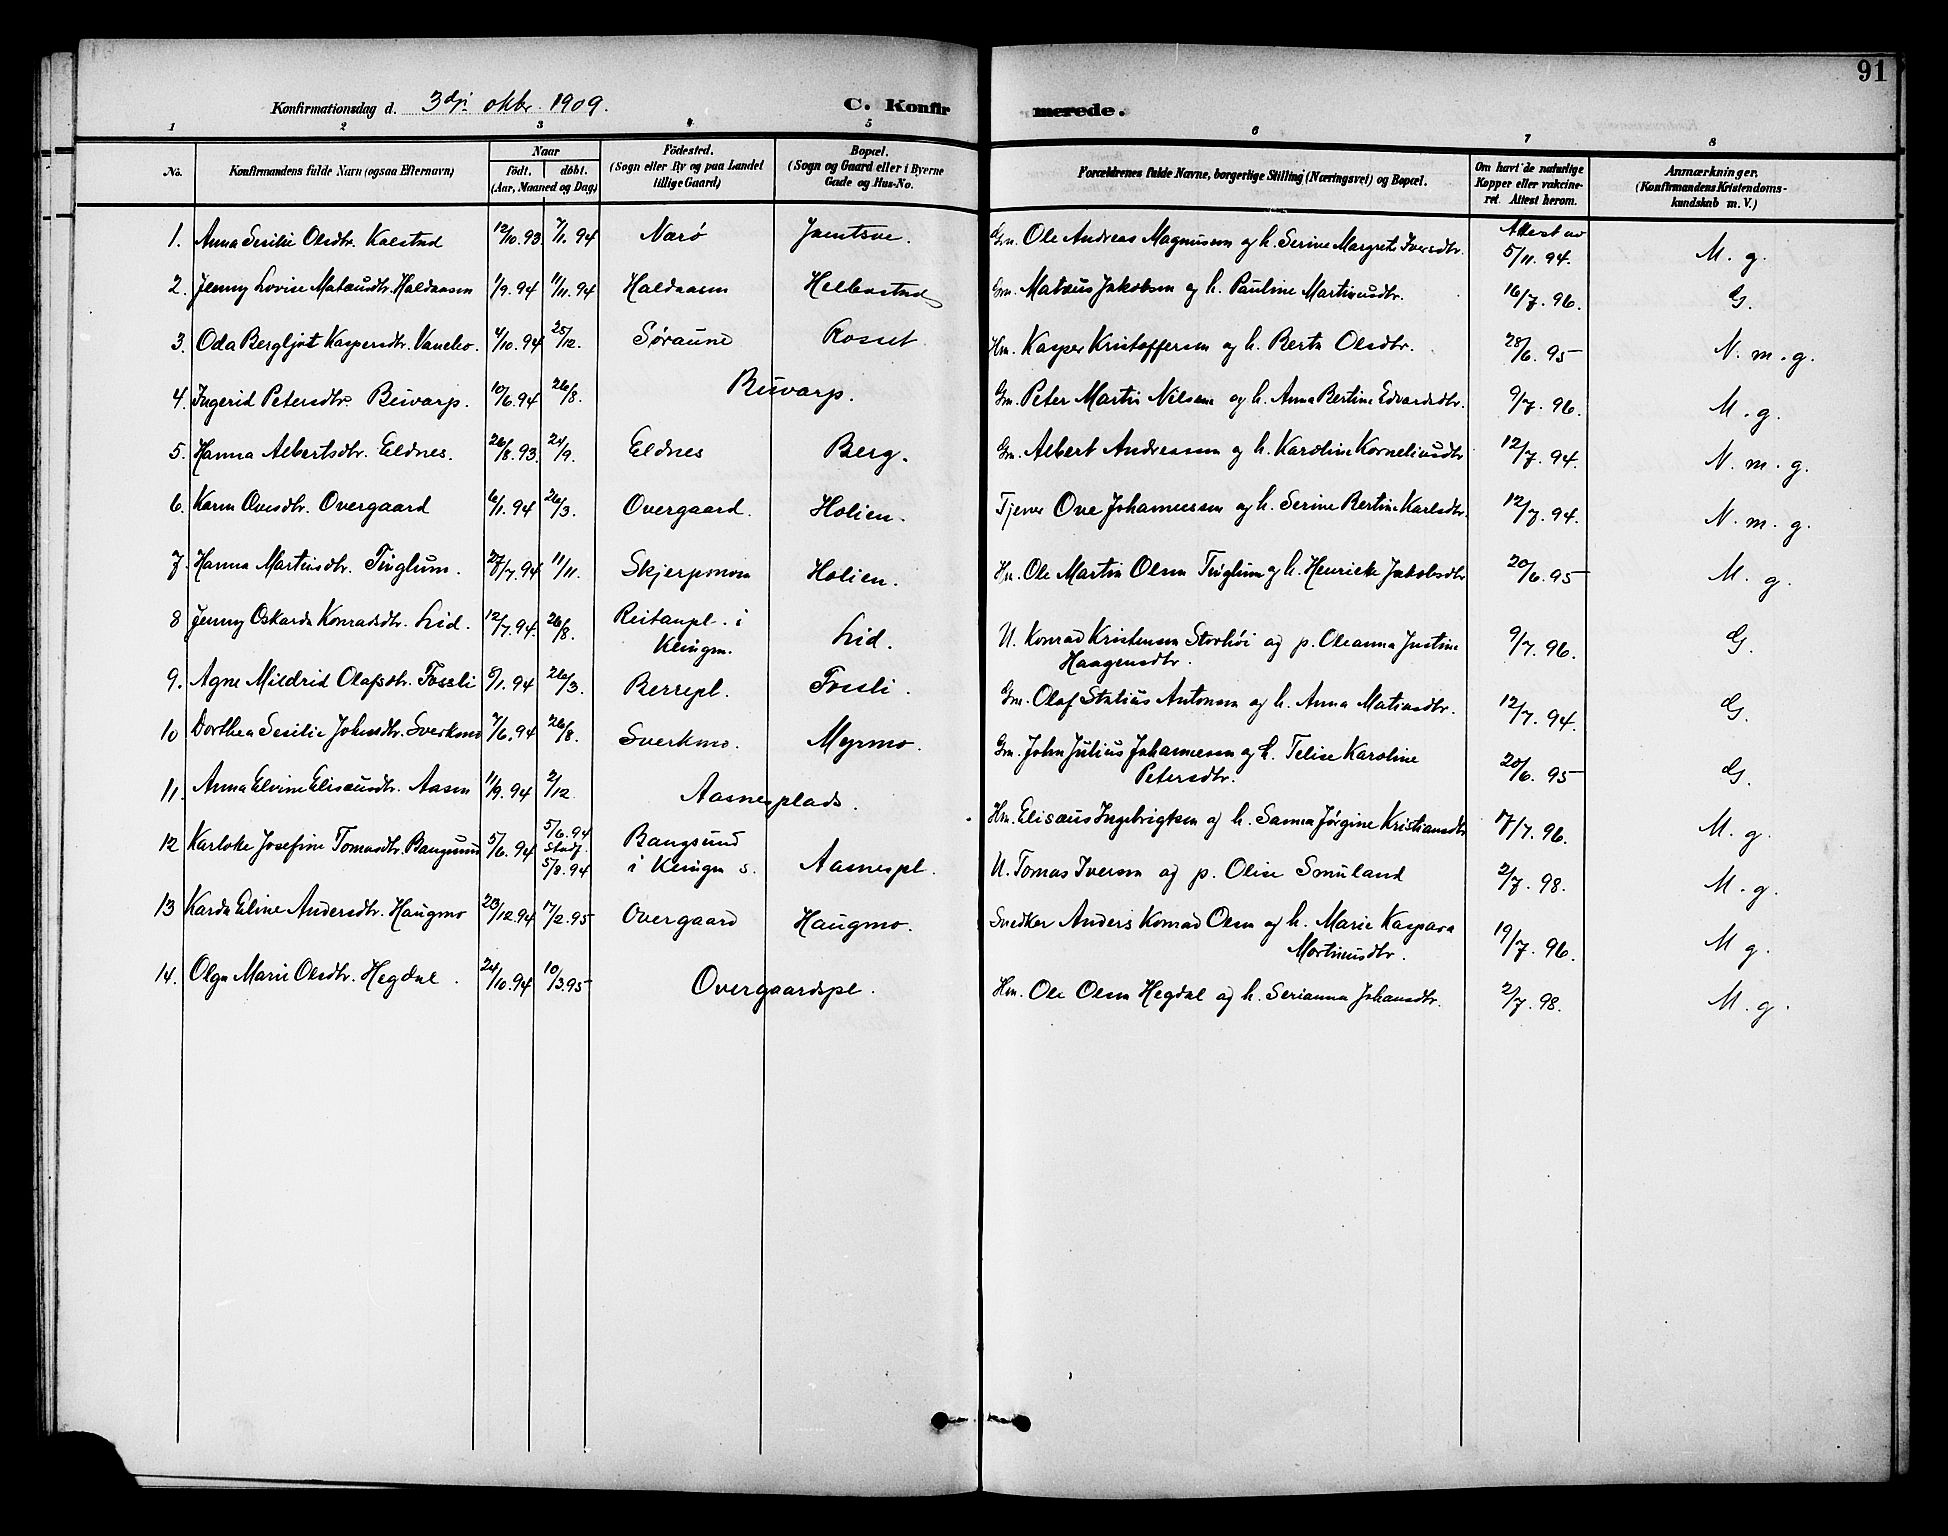 91
Konfirmationsdag d. 3dji oktbr. 1909.
C. Konfirmerede.
1 2 3 4 5 6 7 8
No. Konfirmandens fulde Navn (ogsaa Efternavn) Naar födt, döbt. (Aar, Maaned og Dag) Födested. (Sogn eller By og paa Landet tillige Gaard) Bopæl. (Sogn og Gaard eller i Byerne Gade og Hus-No. Forældrenes fulde Navne, borgerlige Stilling (Næringsvei) og Bopæl. Om havt de naturlige Kopper eller vakcineret. Attest herom. Anmærkninger. (Konfirmandens Kristendomskundskab m. V.)
1. Anna Sesilie Olsdtr. Kolstad 12/10.93. 7/1.94 Nærø Jamtsve. Gm. Ole Andreas Magnussen og h. Serine Margrete Iversdtr. Attest av 5/11.94. M. g.
2. Jenny Lovise Mateusdtr. Haldaasen 1/9.94 11/11.94 Haldaasen Helbostad Gm. Mateus Jakobsen og h. Pauline Martinusdtr. 16/7.96. G.
3. Oda Bergljot Kaspersdtr. Vanebo. 4/10.94 25/12. Søraune Rosset Hm. Kasper Kristoffersen og h. Berta Olsdtr. 28/6.95 N. m. g.
4. Ingerid Petersdtr. Buvarp. 10/6.94 26/8. Buvarp. Gm. Peter Martin Nilsen og h. Anna Bertine Edvardsdtr. 9/7.96. M. g.
5. Hanna Albertsdtr. Eldnes. 26/8.93. 24/9. Eldnes Berg. Gm. Albert Andreassen og h. Karoline Korneliusdtr 12/7.94. N. m. g.
6. Karen Ovesdtr. Overgaard 6/1.94 26/3. Overgaard. Holien. Tjener Ove Johannessen og h. Serine Bertine Karlsdtr. 12/7.94. N. m. g.
7. Hanna Martinsdtr. Tinglum. 27/7.94 11/11. Skjerponom Holien. Hm. Ole Martin Olsen Tinglum og h. Henrikke Jakobsdtr 20/6.95 M. g.
8 Jenny Oskarda Konradsdtr. Lid. 12/7.94. 26/8. Reitanpl. i Klingen. Lid. U. Konrad Kristensen Storhøi og p. Oleanna Justine Haagensdtr. 9/7.96. G.
9. Agne Mildrid Olafsdtr. Fossli 5/1.94 26/3. Berrepl. Fossli. Gm. Olaf Stalius Antonsen og h. Anna Matiasdtr. 12/7.94. G.
10 Dorthea Sesilie Johnsdtr. Sverkmo 7/6.94 26/8. Sverkmo. Myrmo. Gm. John Julius Johannessen og h. Telise Karoline Petersdtr. 20/6.95 G.
11. Anna Elvine Eliseusdtr. Aasen 11/9.94 2/12. Aasnesplads. Hm. Eliseus Ingebrigtsen og h. Sanna Jørgine Kristiansdtr 17/7.96. M. g.
12 Karlotte Josefine Tomasdtr. Bangsund 5/6.94 5/6.94 stadf. 5/8.94 Bangsund i Klingen s. Aasnespl. U. Tomas Iversen og p. Olise Smuland 2/7.98. M. g.
13 Karda Eline Andersdtr. Haugmo 23/12.94 17/2.95 Overgaard Haugmo. Snedker Anders Konrad Olsen og h. Marie Kaspara Mortinusdtr. 19/7.96. M g.
14. Olga Marie Olsdtr. Hegdal. 24/10.94 10/3.95 Overgaardspl. Hm. Ole Olsen Hegdal og h. Serianna Johansdtr. 2/7.98. M. g.